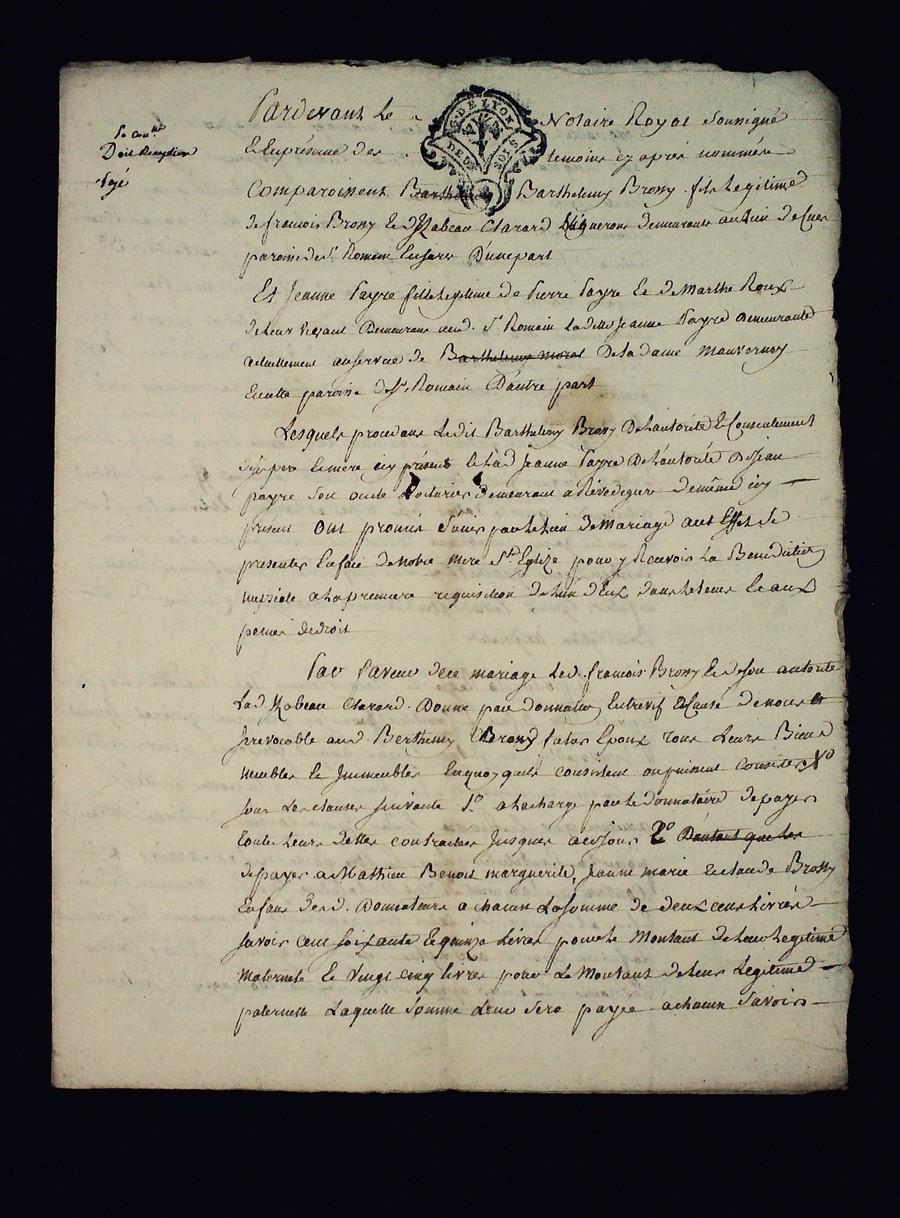 Pardevant Le Notaire Royal soussigné
G. DE LYON
DEUX SOLS
Doit Reception
payé
Et En présence des temoins cy après nommés
Comparoissent Barthelemy Brossy fils Legitime
de francois Brossy Et d'Izabeau Clarard Vigneron demeurants au Lieu de
paroisse de St Romain En Jarez D'une part
Et Jeanne Payre fille Legitime de Pierre Payre Et de Marthe Roux
de Leur vivant Demeurans aud. St Romain Ladite Jeanne Payre Demeurante
actuellement au service de Barthelemy morel De La dame Mauvernay
En cette paroisse de St Romain D'autre part
Lesquels procedans Ledit Barthelemy Brossy De L'autorité Et Consentement
de ses pere Et mere icy présents Et Lad. Jeanne Payre De L'autorité De Jean
payre son oncle demeurant a Rivedegier de même icy
present ont promis S'unir par Le Lien de Mariage au Effet se
presenter En face de Notre mere Ste Eglize pour y Recevoir La Benediction
nuptiale a La premiere requisition de L'un d'Eux dans Le tems Et aux
peines de droit
En faveur de ce mariage Led. francois Brossy Et de son autorité
Lad. Izabeau Clarard. Donne par donnation Entre vif a Cause de noces Et
Irrevocable aud. Berthelemy Brossy futur Epoux Tous Leurs Biens
meubles Et Immeubles En quoy quils consistent ou puissent Consister
sous Les clauses suivante 1o a La charge par Le donnataire de payer
toute Leurs dettes contractées Jusques a ce jour 2o D'autant que Les
de payer a Mathieu Benoit marguerite, Jeanne marie Et claude Brossy
Enfans desd. Donnateurs a chacun La Somme de deux cens Livres
savoir cent soixante Et quinze Livres pour Le Montant de Leur Legitime
maternelle Et vingt cinq Livres pour Le Montant de Leur Legitime
paternelle Laquelle Somme Leur Sera payée a chacun Savoir